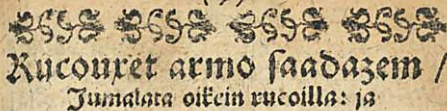 Rucouxet armo saadazem /
Jumalata oikein rucoilla: ja